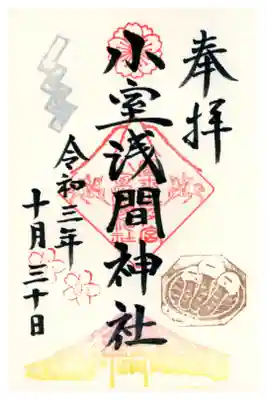 奉拝
小室浅間神社
令和三年
十月三十日